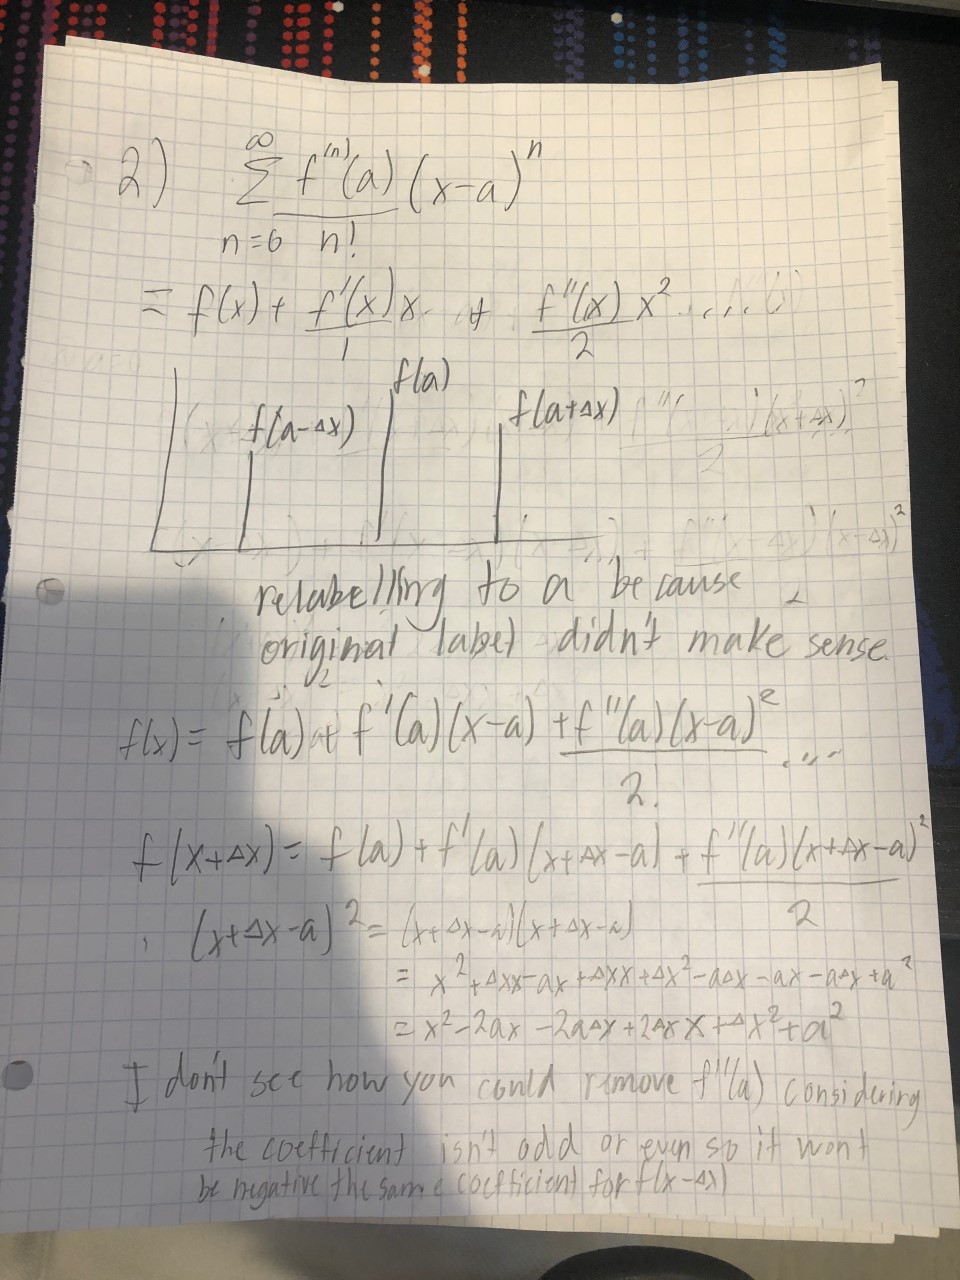 2) ∞ Σ n=0 f⁽ⁿ⁾(a)/n! (x-a)ⁿ
= f(x) + f'(x)/1 x + f''(x)/2 x² ....
f(a)
f(a-Δx) f(a+Δx)
relabelling to a because
original label didn't make sense.
f(x) = f(a) + f'(a)(x-a) + f''(a)(x-a)²/2 ....
f(x+Δx) = f(a) + f'(a)(x+Δx-a) + f''(a)(x+Δx-a)²/2
(x+Δx-a)² = (x+Δx-a)(x+Δx-a)
= x²+Δxx-ax+Δxx+Δx²-aΔx-ax-aΔx+a²
= x²-2ax-2aΔx+2Δxx+Δx²+a²
I don't see how you could remove f''(a) considering
the coefficient isn't odd or even so it won't
be negative the same coefficient for f(x-Δx)